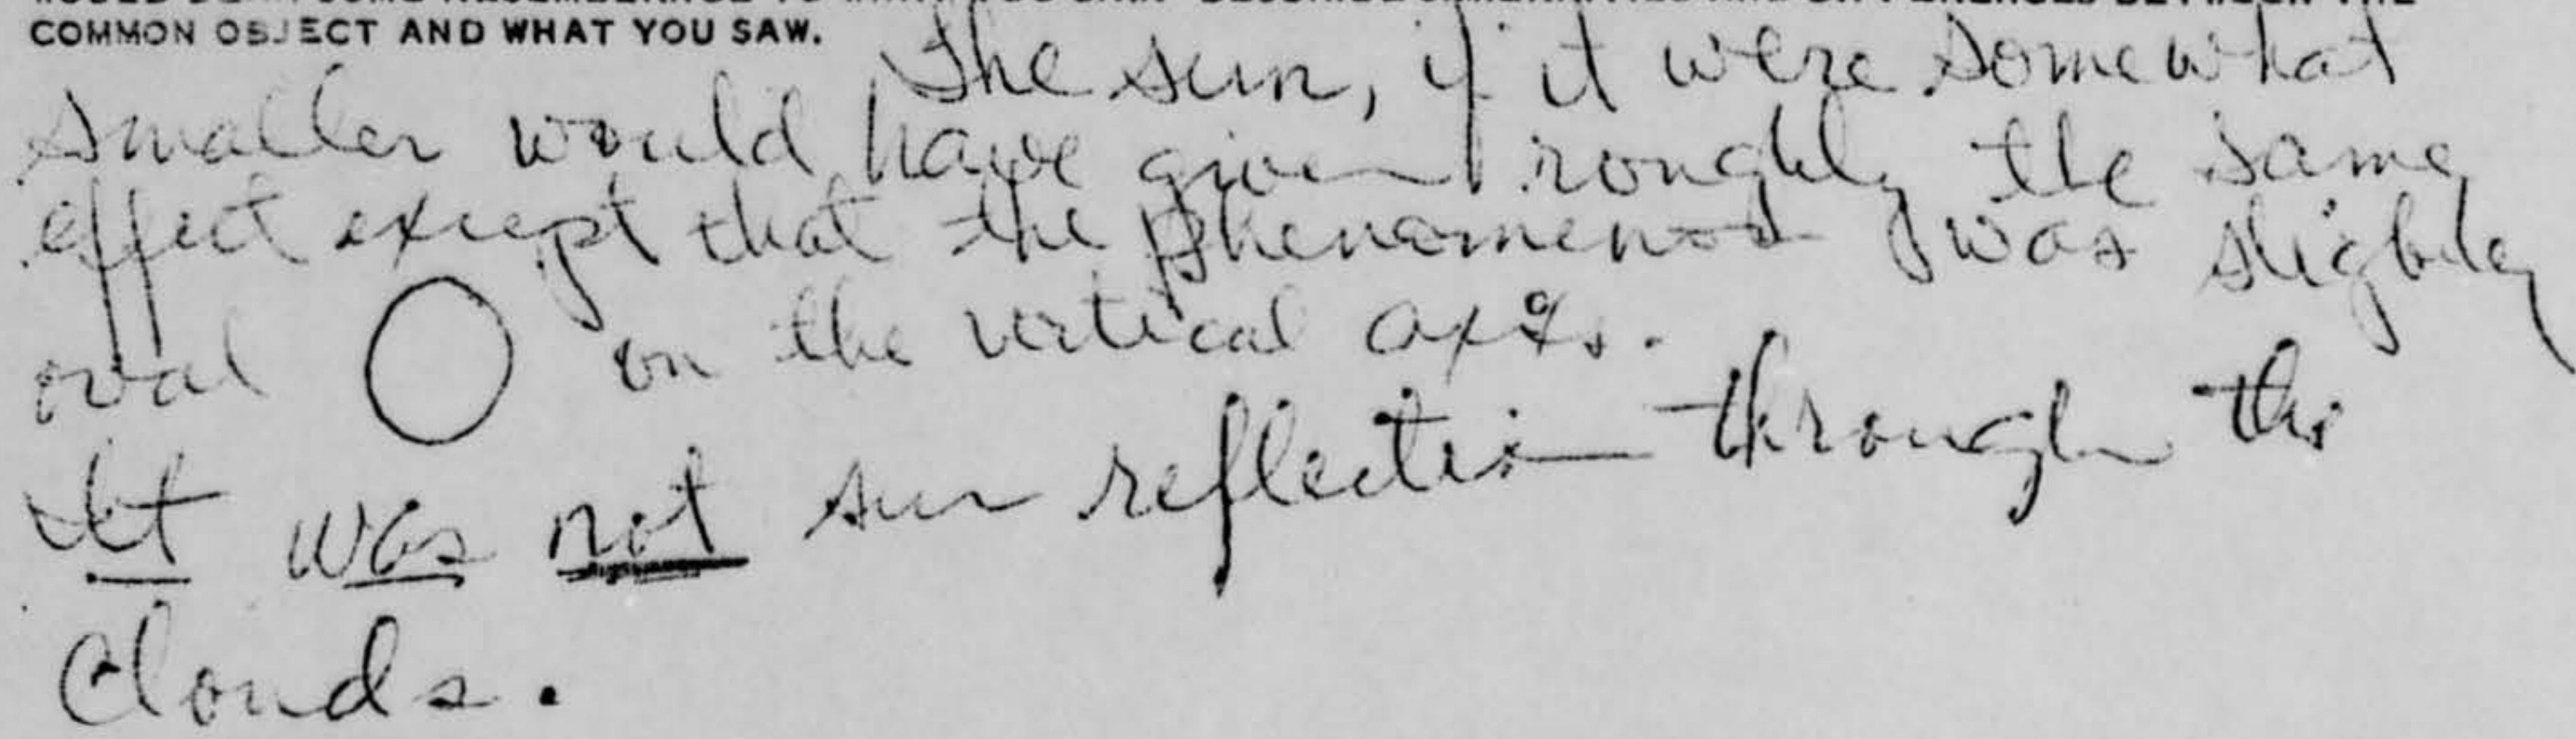 COMMON OBJECT AND WHAT YOU SAW.
The sun, if it were somewhat
smaller would have given roughly the same
effect except that the phenomenon was slightly
oval on the vertical axis.
It was not sun reflection through the
clouds.